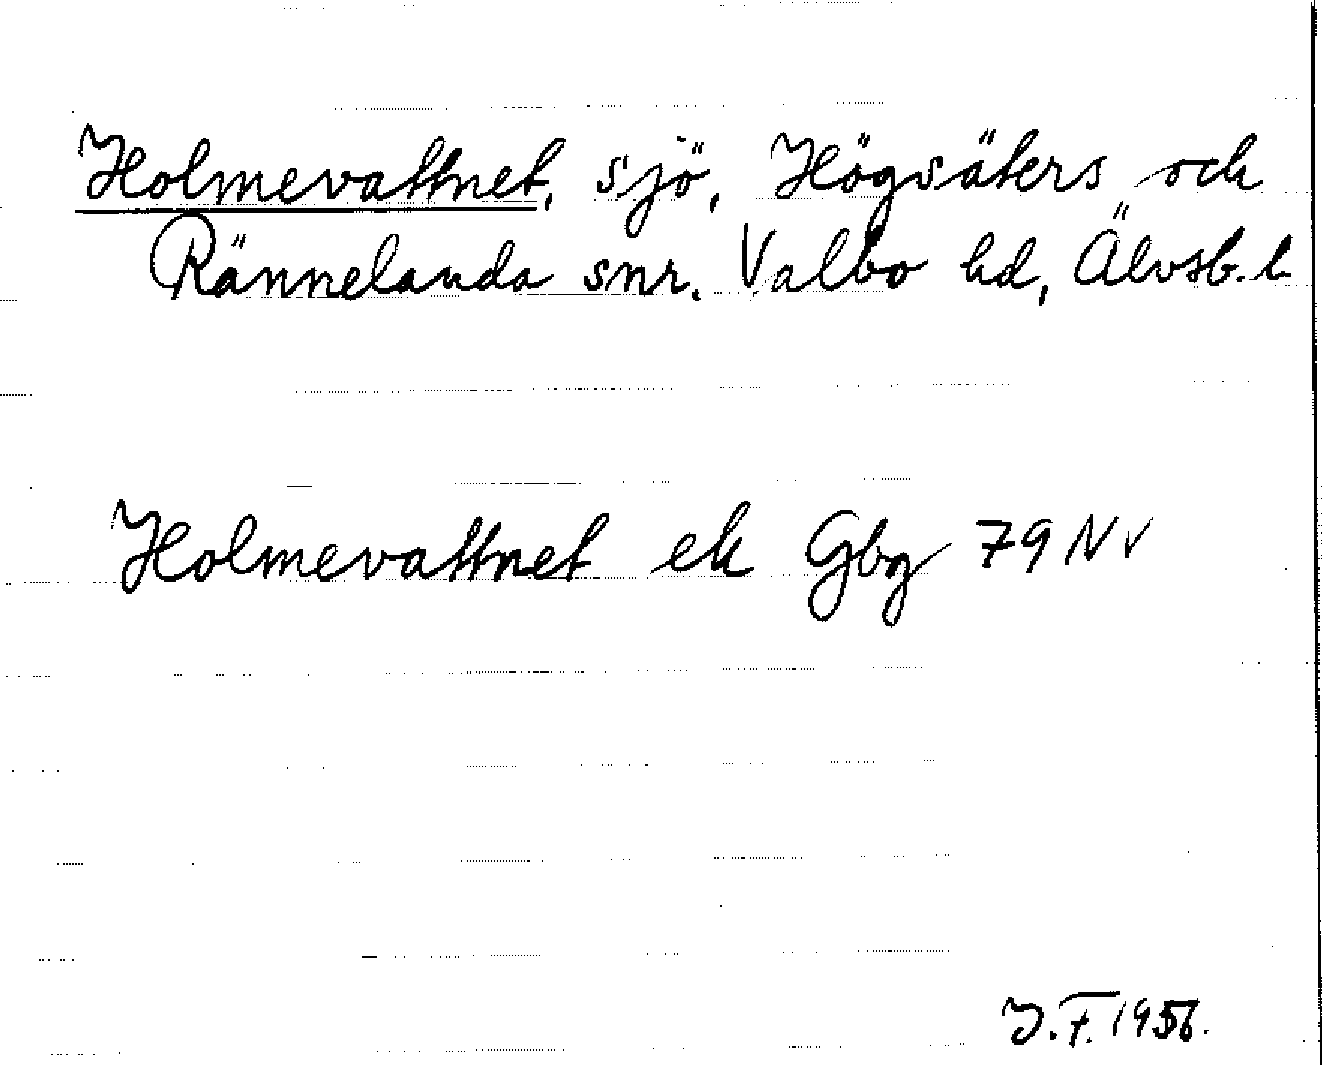 Holmevattnet, sjö, Högsäters och
Rännelanda snr. Valbo hd, Älvsb. l
Holmevattnet ek Gbg 79 NV
J.F. 1956.